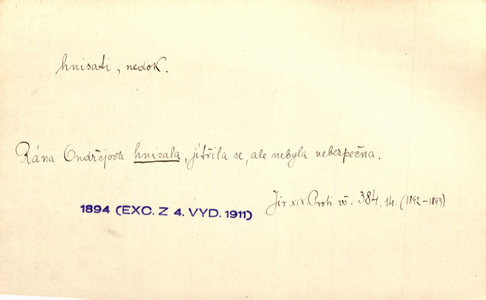 hnisati, nedok.
Rána Ondřejova hnisala, jitřila se, ale nebyla nebezpečna.
Jir XIX. Proti vš. 384. 14. (1892-1893)
1894 (EXC. Z 4. VYD. 1911)